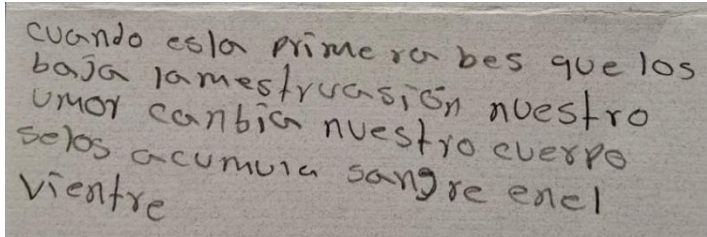 cuando esla primera bes que los
baja lamestruasión nuestro
umor canbia nuestro cuerpo
selos acumula sangre enel
vientre